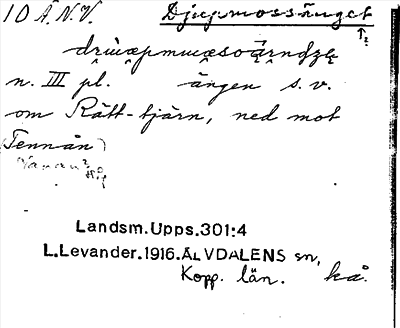 10 Ä.N.V. Djupmossänget
n. III pl. ängen s.v.
om Rått-tjärn, ned mot
(Tennån)
Landsm.Upps.301:4
L.Levander.1916.ÄLVDALENS sn,
Kopp. län. kå.